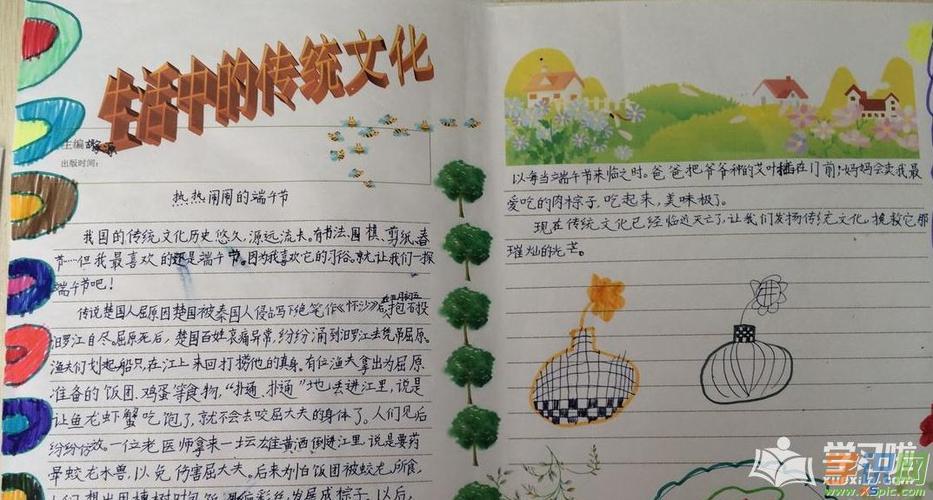 生活中的传统文化
主编
出版时间:
热热闹闹的端午节
我国的传统文化历史悠久,源远流长。有书法、围棋、剪纸、春
节…但我最喜欢的还是端午节。因为我喜欢它的习俗。就让我们一探
端午节吧!
传说楚国人屈原因楚国被秦国人侵占写下绝笔作《怀沙》后,抱石投
汨罗江自尽。屈原死后,楚国百姓哀痛异常,纷纷涌到汨罗江去凭吊屈原。
渔夫们划起船只,在江上来回打捞他的真身。有位渔夫拿出为屈原
准备的饭团、鸡蛋等食物,“扑通、扑通”地丢进江里,说是
让鱼龙虾蟹吃饱了,就不会去咬屈大夫的身体了。人们见后
纷纷仿效。一位老医师拿来一坛雄黄酒倒进江里,说是要药
晕蛟龙水兽,以免伤害屈大夫。后来为怕饭团被蛟龙所食,
人们想出用楝树叶包饭,彩丝,发展成粽子。以后,
以每当端午节来临之时。爸爸把爷爷种的艾叶插在门前,妈妈会卖我最
爱吃的肉粽子,吃起来,美味极了。
现在传统文化已经临近灭亡了,让我们发扬传统文化,拯救它那
璀灿的光芒。
学习啦
xuexila.com
www.xspic.com